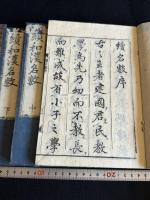 續名數序
古之王者建國君民教
學為先乃幼而不教長
而難成故有小子之學
和漢名數
中
和漢名數
下